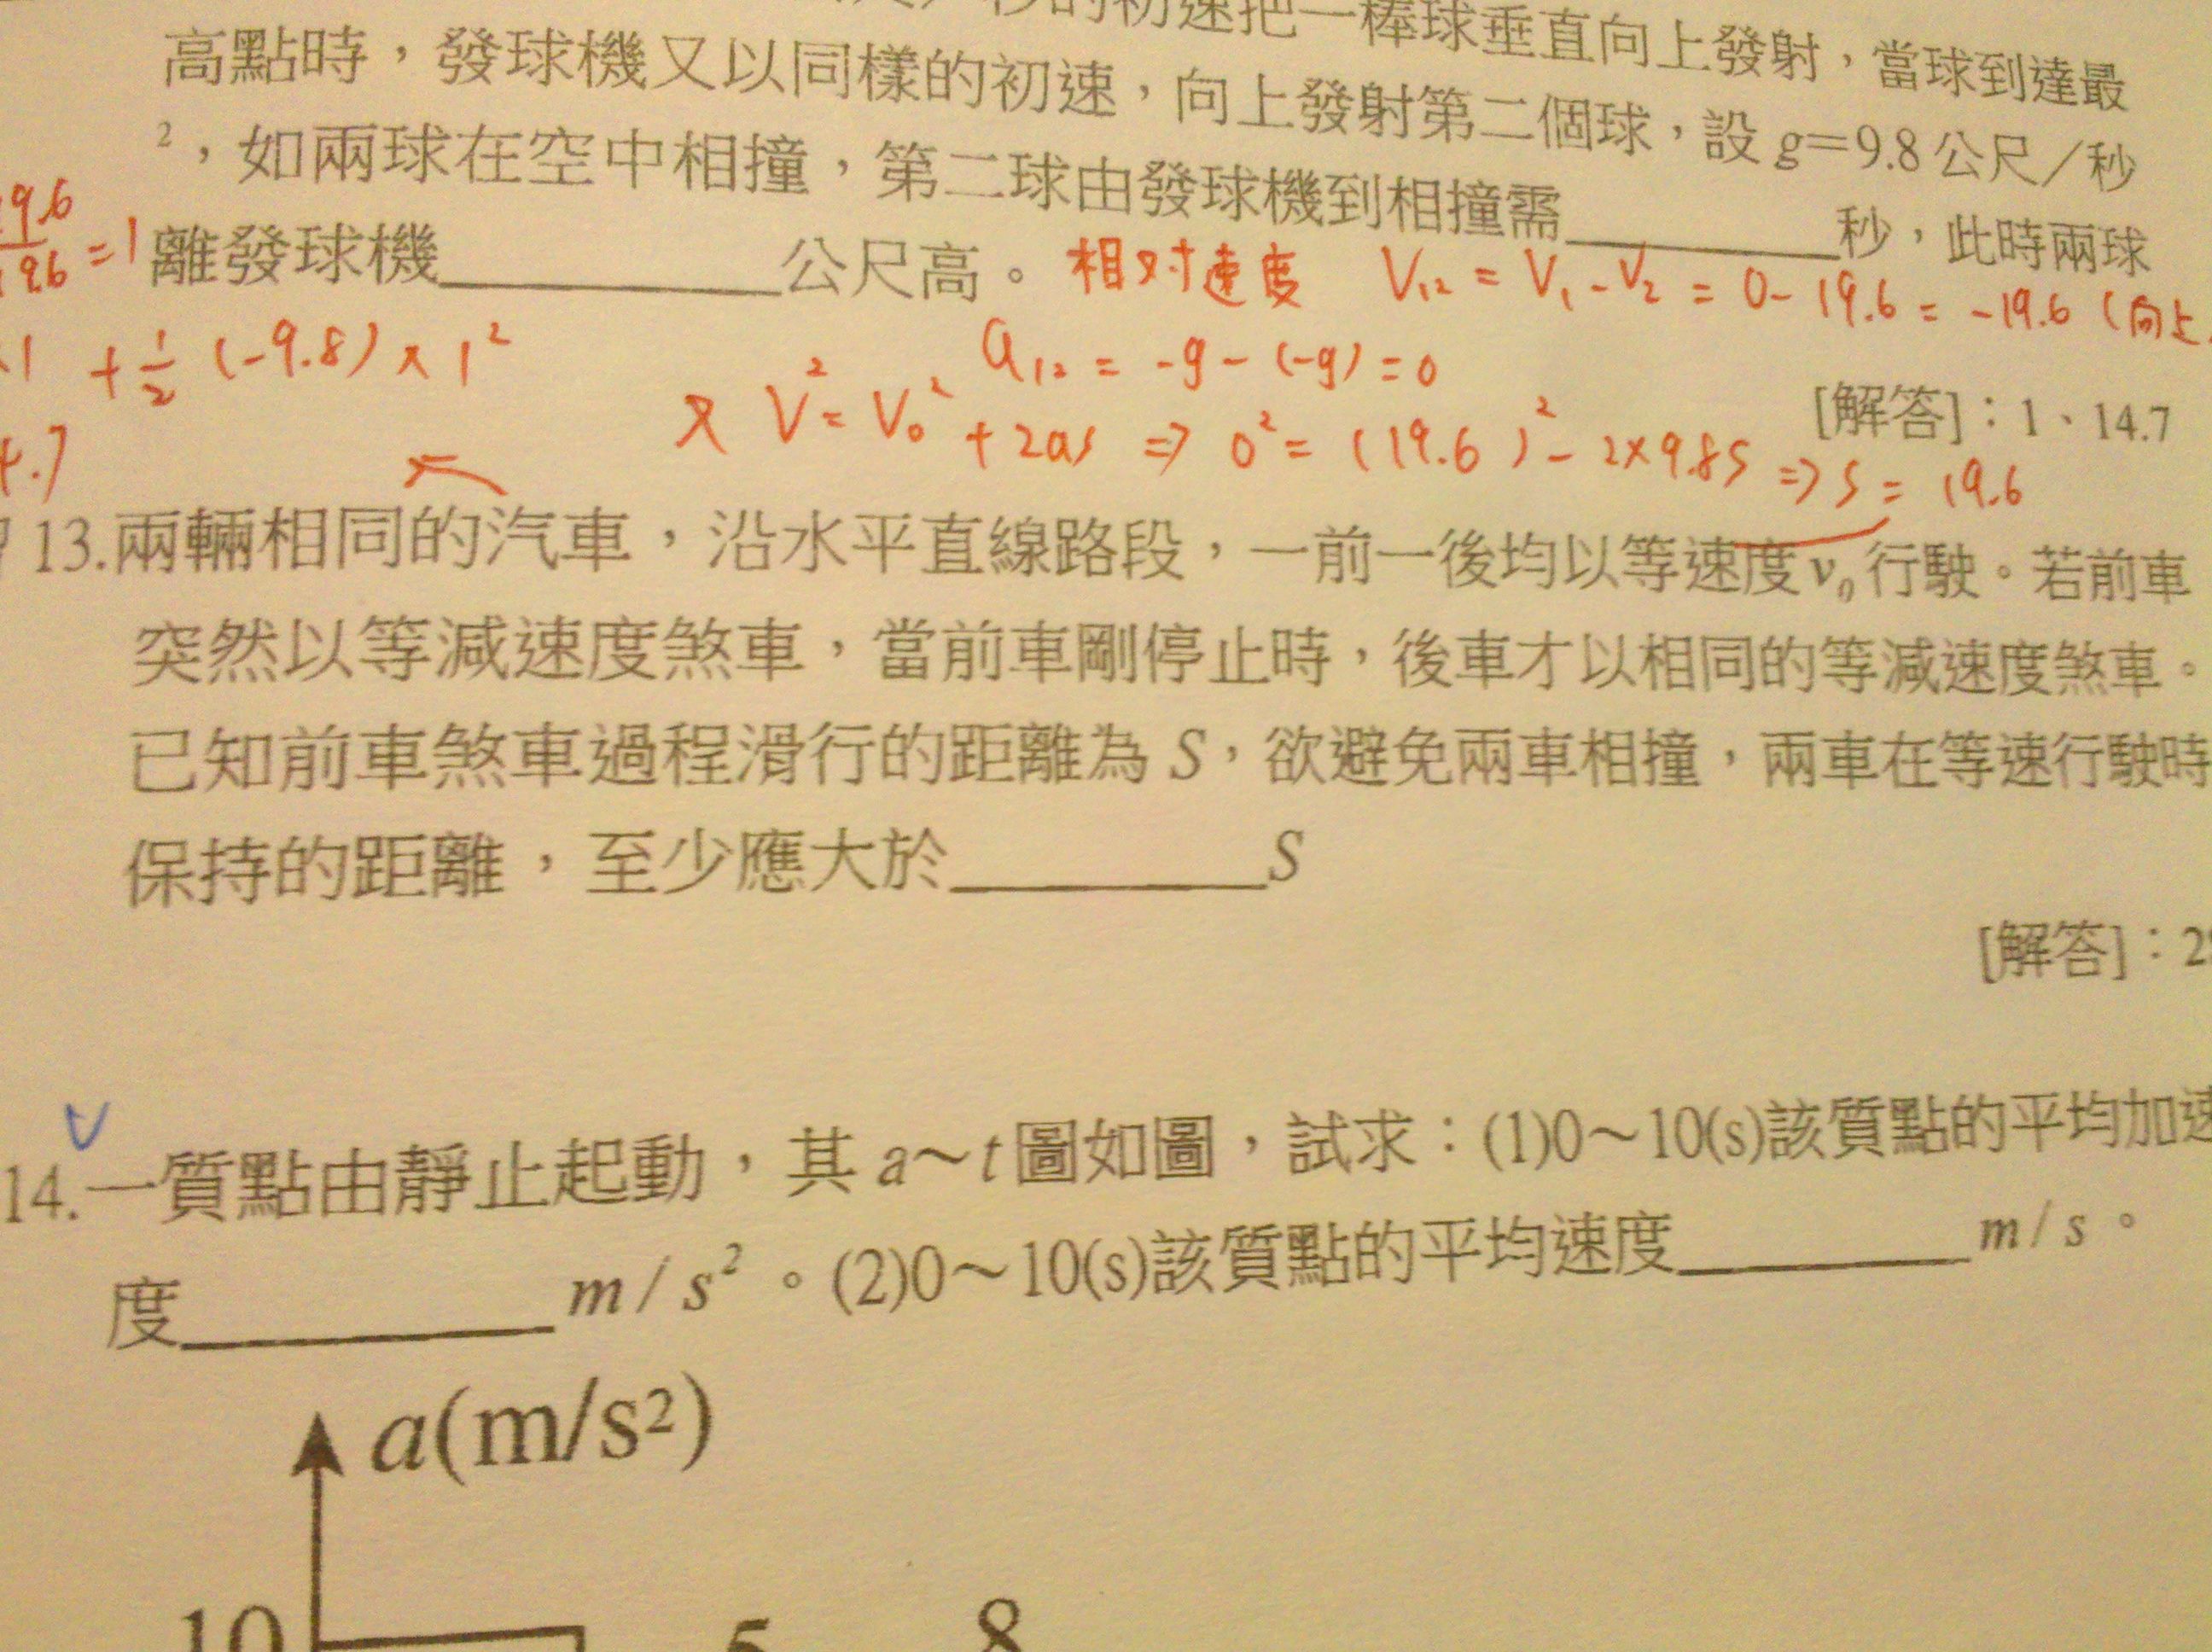 秒的初速把一棒球垂直向上發射，當球到達最
高點時，發球機又以同樣的初速，向上發射第二個球，設 g=9.8 公尺／秒
²，如兩球在空中相撞，第二球由發球機到相撞需________秒，此時兩球
離發球機________公尺高。
19.6/19.6 = 1
相对速度 V₁₂ = V₁ - V₂ = 0 - 19.6 = -19.6 (向上
a₁₂ = -g - (-g) = 0
×1 + 1/2 (-9.8) × 1²
V² = V₀² + 2as ⇒ 0² = (19.6)² - 2×9.8S ⇒ S = 19.6
[解答]：1、14.7
4.7
13.兩輛相同的汽車，沿水平直線路段，一前一後均以等速度 v₀ 行駛。若前車
突然以等減速度煞車，當前車剛停止時，後車才以相同的等減速度煞車。
已知前車煞車過程滑行的距離為 S，欲避免兩車相撞，兩車在等速行駛時
保持的距離，至少應大於________S
[解答]：2
14.一質點由靜止起動，其 a～t 圖如圖，試求：(1)0～10(s)該質點的平均加速
度________m/s²。(2)0～10(s)該質點的平均速度________m/s。
a(m/s²)
10 5 8